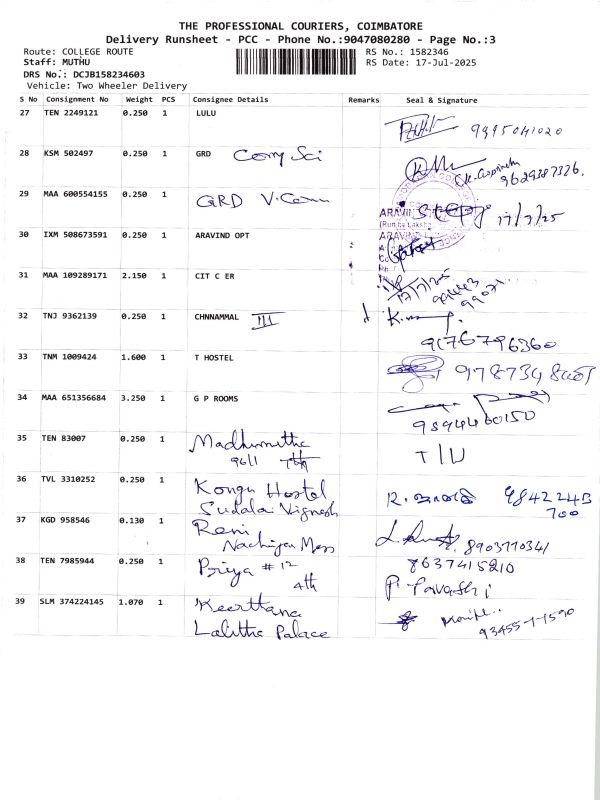 THE PROFESSIONAL COURIERS, COIMBATORE
Delivery Runsheet - PCC - Phone No.:9047080280 - Page No.:3
Route: COLLEGE ROUTE
RS No.: 1582346
Staff: MUTHU
RS Date: 17-Jul-2025
DRS No.: DCJB158234603
Vehicle: Two Wheeler Delivery
S No Consignment No Weight PCS Consignee Details Remarks Seal & Signature
27 TEN 2249121 0.250 1 LULU
28 KSM 502497 0.250 1 GRD Com Sci
9629387326.
29 MAA 600554155 0.250 1 GRD V. Com
17/7/25
30 IXM 508673591 0.250 1 ARAVIND OPT
31 MAA 109289171 2.150 1 CIT C ER
17/7/25
32 TNJ 9362139 0.250 1 CHNNAMMAL III
9176796360
33 TNM 1009424 1.600 1 T HOSTEL
34 MAA 651356684 3.250 1 G P ROOMS
9594460150
35 TEN 83007 0.250 1 Madhumitha
9611 7th
T/W
36 TVL 3310252 0.250 1 Kongu Hostel
Sudalai Vignesh
9842243
700
37 KGD 958546 0.130 1 Reni
Nachiyar Mess
8903770341
38 TEN 7985944 0.250 1 Priya # 12
4th
8637415210
P. Pavashi
39 SLM 374224145 1.070 1 Keerttana
Lalitha Palace
93455-1-1590